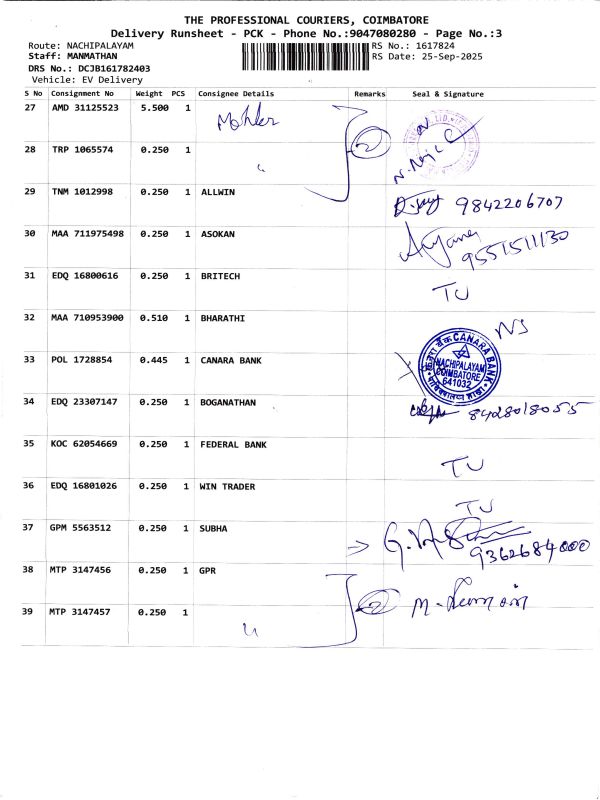 THE PROFESSIONAL COURIERS, COIMBATORE
Delivery Runsheet - PCK - Phone No.:9047080280 - Page No.:3
Route: NACHIPALAYAM RS No.: 1617824
Staff: MANMATHAN RS Date: 25-Sep-2025
DRS No.: DCJB161782403
Vehicle: EV Delivery
S No Consignment No Weight PCS Consignee Details Remarks Seal & Signature
27 AMD 31125523 5.500 1 Mahler 2
28 TRP 1065574 0.250 1 "
29 TNM 1012998 0.250 1 ALLWIN 9842206707
30 MAA 711975498 0.250 1 ASOKAN 9551511130
31 EDQ 16800616 0.250 1 BRITECH TU
32 MAA 710953900 0.510 1 BHARATHI NS
33 POL 1728854 0.445 1 CANARA BANK CANARA BANK NACHIPALAYAM COIMBATORE 641032
34 EDQ 23307147 0.250 1 BOGANATHAN 8428018055
35 KOC 62054669 0.250 1 FEDERAL BANK TU
36 EDQ 16801026 0.250 1 WIN TRADER TU
37 GPM 5563512 0.250 1 SUBHA 9362684000
38 MTP 3147456 0.250 1 GPR 2
39 MTP 3147457 0.250 1 "